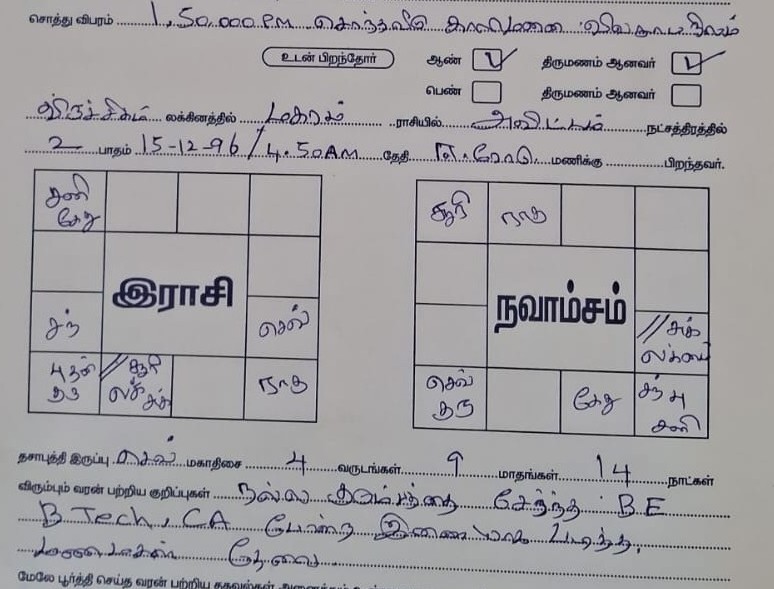 சொத்து விபரம் 1,50,000 PM சொந்தவீடு காலிமனை விவசாய நிலம்
உடன் பிறந்தோர் ஆண் ✓ திருமணம் ஆனவர் ✓
பெண் திருமணம் ஆனவர்
விருச்சிகம் லக்கினத்தில் மகரம் ராசியில் அவிட்டம் நட்சத்திரத்தில்
2 பாதம் 15-12-96 / 4.50AM தேதி ஈ.ரோடு மணிக்கு பிறந்தவர்.
சனி கேது
சந்
இராசி
செவ்
புதன் குரு
// சூரி லக் சுக்
ராகு
சூரி
ராகு
நவாம்சம்
// சுக் லக்னம்
செவ் குரு
கேது
சந் பு சனி
தசாபுத்தி இருப்பு செவ் மகாதிசை 4 வருடங்கள் 9 மாதங்கள் 14 நாட்கள்
விரும்பும் வரன் பற்றிய குறிப்புகள் நல்ல குடும்பத்தை சேர்ந்த BE
B.Tech, CA போன்ற இணையாக படித்த,
மணமகன் தேவை
மேலே பூர்த்தி செய்த வரன் பற்றிய தகவல்கள் அனைத்தும்